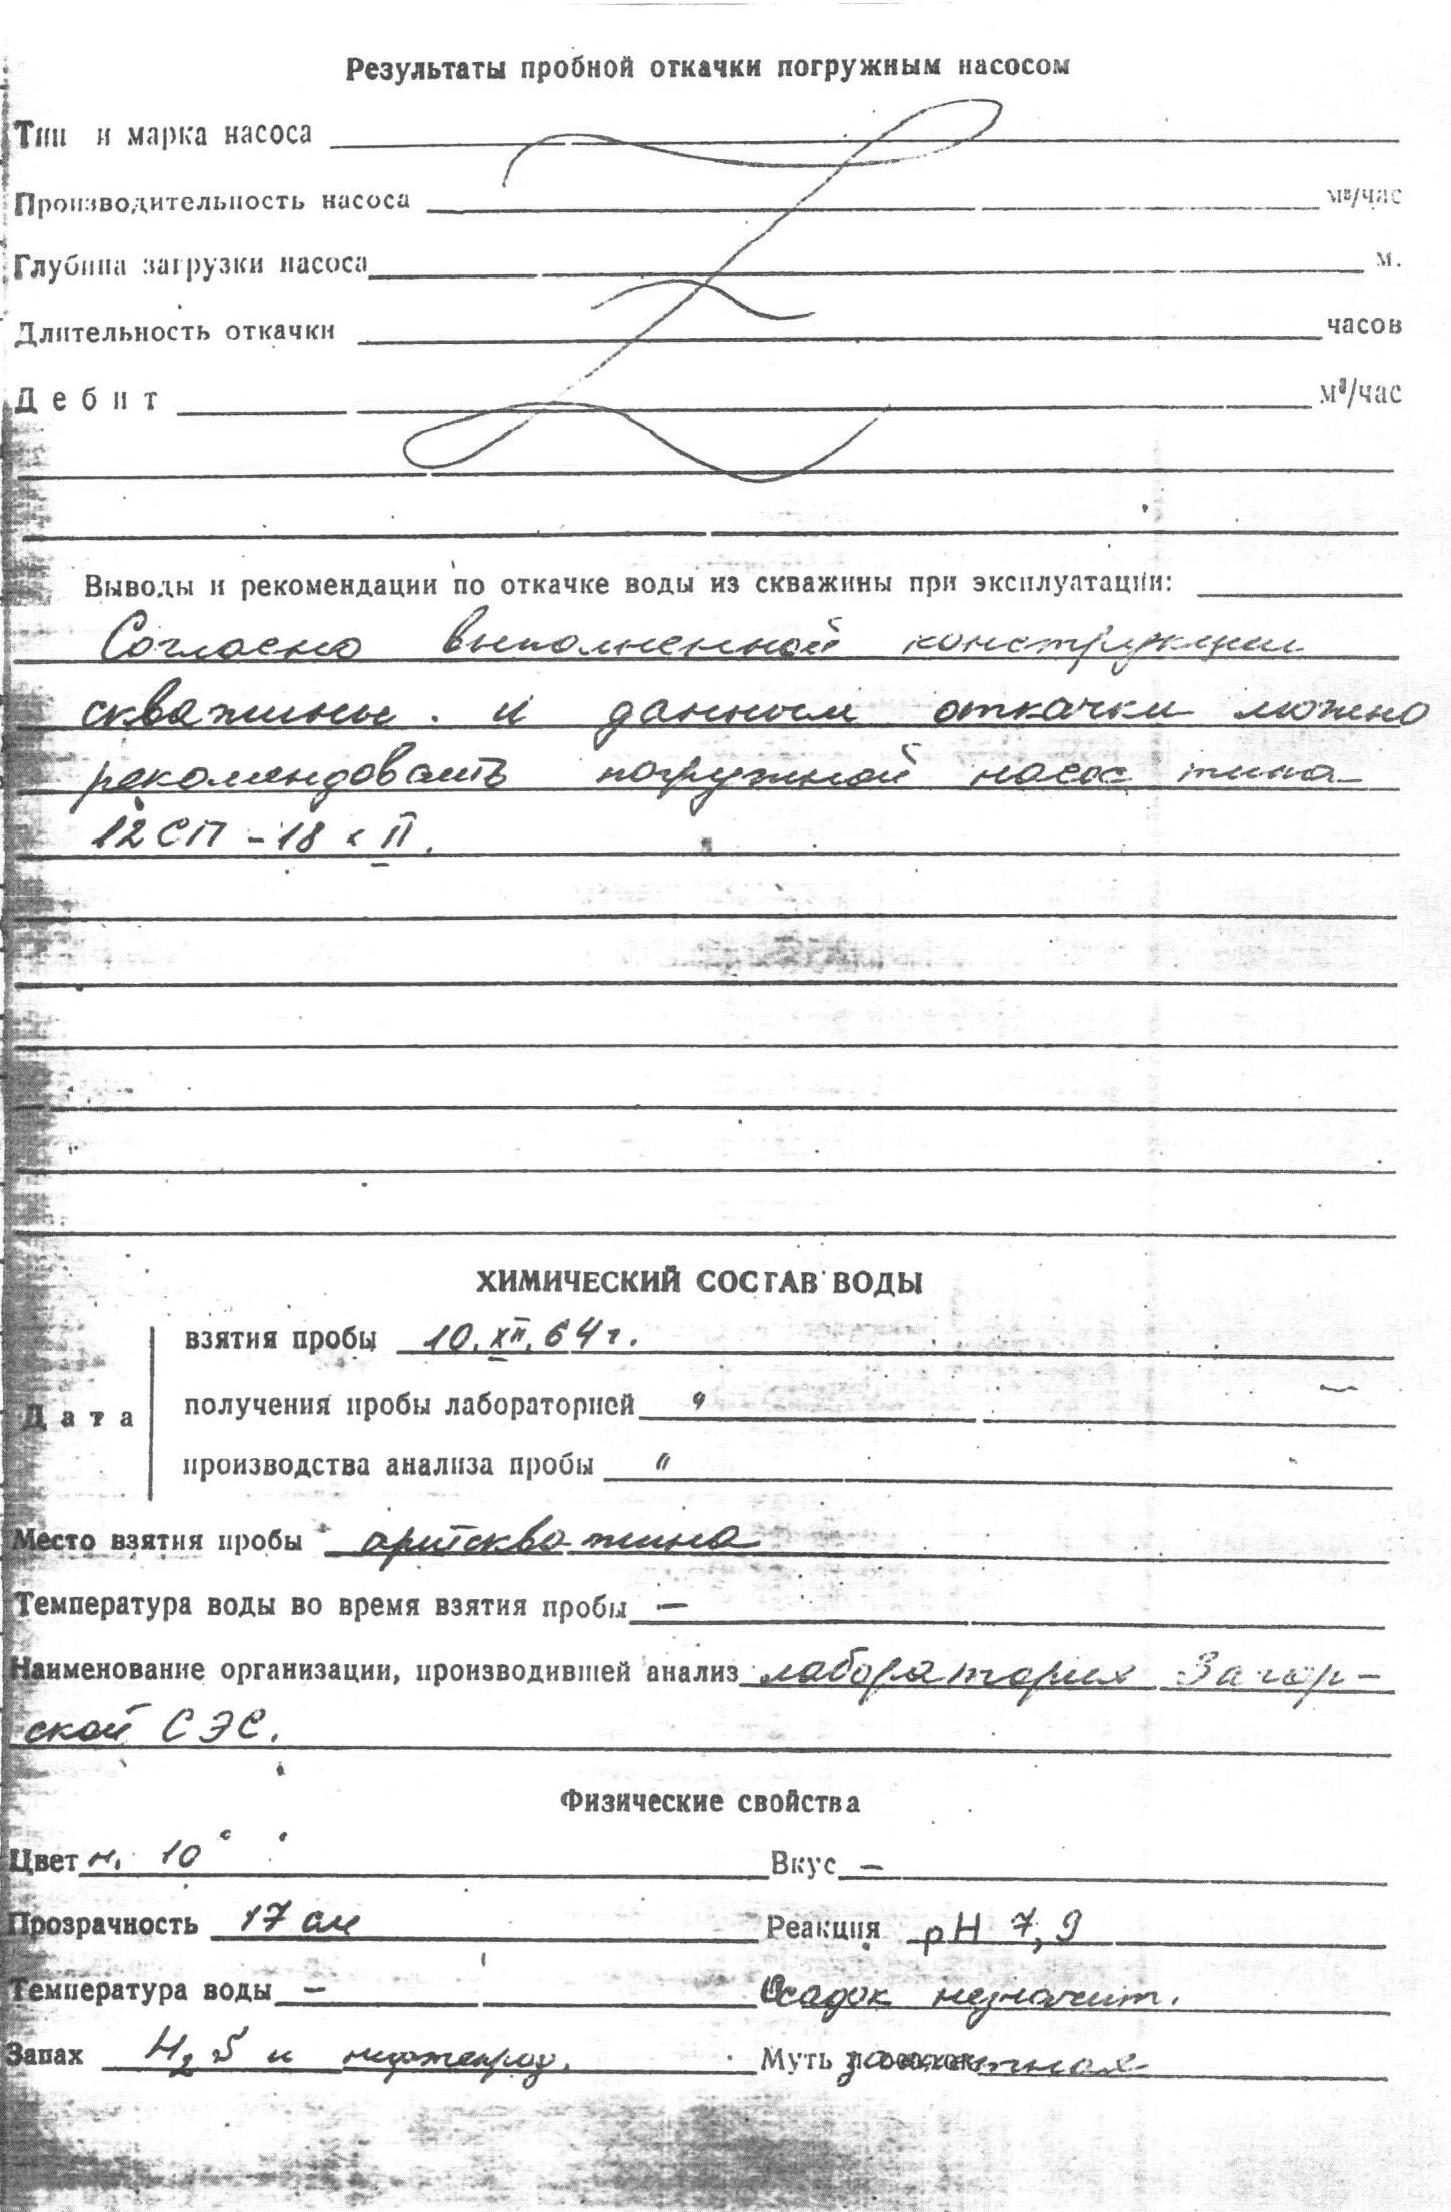 Результаты пробной откачки погружным насосом
Тип и марка насоса
Производительность насоса м³/час
Глубина загрузки насоса м.
Длительность откачки часов
Дебит м³/час
Выводы и рекомендации по откачке воды из скважины при эксплуатации:
Согласно выполненной конструкции
скважины и данным откачки можно
рекомендовать погружной насос типа
12СП - 18 х II.
ХИМИЧЕСКИЙ СОСТАВ ВОДЫ
взятия пробы 10.XII.64г.
Дата получения пробы лабораторией "
производства анализа пробы "
Место взятия пробы артскважина
Температура воды во время взятия пробы —
Наименование организации, производившей анализ лаборатория Загор-
ской СЭС.
Физические свойства
Цвет н. 10° Вкус —
Прозрачность 17 см Реакция pH 7,9
Температура воды — Осадок незначит.
Запах H₂S и Муть